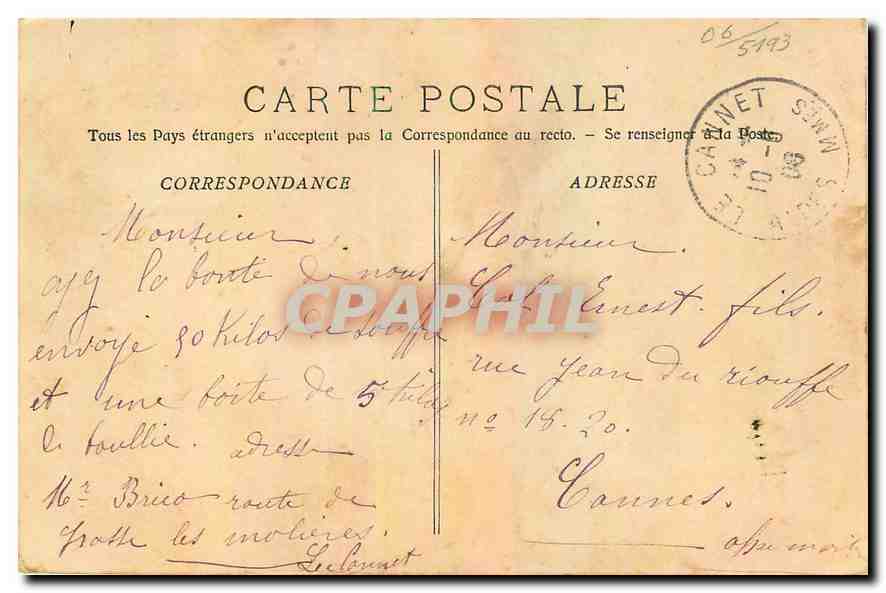 06/5193
CARTE POSTALE
Tous les Pays étrangers n'acceptent pas la Correspondance au recto. – Se renseigner à la Poste.
LE CANNET
MMES
10
CORRESPONDANCE
Monsieur,
ayez la bonté de nous
envoyé 50 Kilos de souffre
et une boite de 5 kilos
de boullie. adresse
Mr Brico route de
grasse les molières.
Le Cannet
ADRESSE
Monsieur.
Ernest. fils.
rue jean du riouffe
no 18. 20.
Cannes.
CPAPHIL